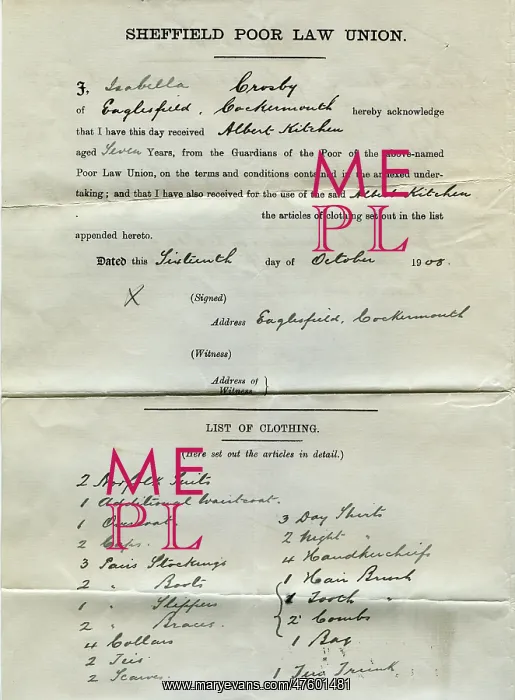 SHEFFIELD POOR LAW UNION.
I, Isabella Crosby
of Eaglesfield, Cockermouth hereby acknowledge
that I have this day received Albert Kitchen
aged Seven Years, from the Guardians of the Poor of the above-named
Poor Law Union, on the terms and conditions contained in the annexed under-
taking; and that I have also received for the use of the said Albert Kitchen
the articles of clothing set out in the list
appended hereto.
Dated this Sixteenth day of October 1908.
X (Signed)
Address Eaglesfield, Cockermouth
(Witness)
Address of Witness }
LIST OF CLOTHING.
(Here set out the articles in detail.)
2 Norfolk Suits
1 Additional Waistcoat.
1 Overcoat.
2 Caps.
3 Pairs Stockings
2 " Boots
1 " Slippers
2 " Braces.
4 Collars
2 Ties
2 Scarves
3 Day Shirts
2 Night "
4 Handkerchiefs
1 Hair Brush
1 Tooth "
2 Combs
1 Bag
1 Trunk
ME
PL
ME
PL
www.maryevans.com/47601481